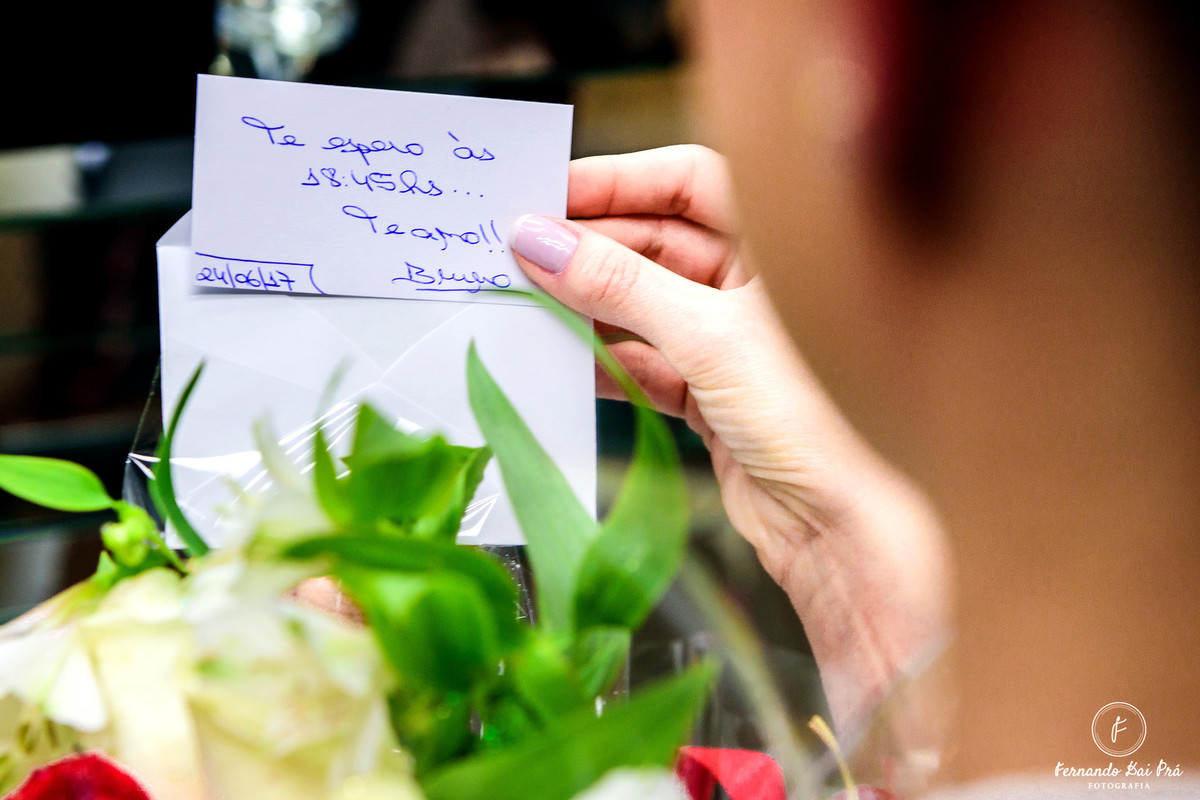 Te espero às
18:45hs...
Te amo!!
24/06/17
Bruno
F
Fernando Dai Prá
FOTOGRAFIA